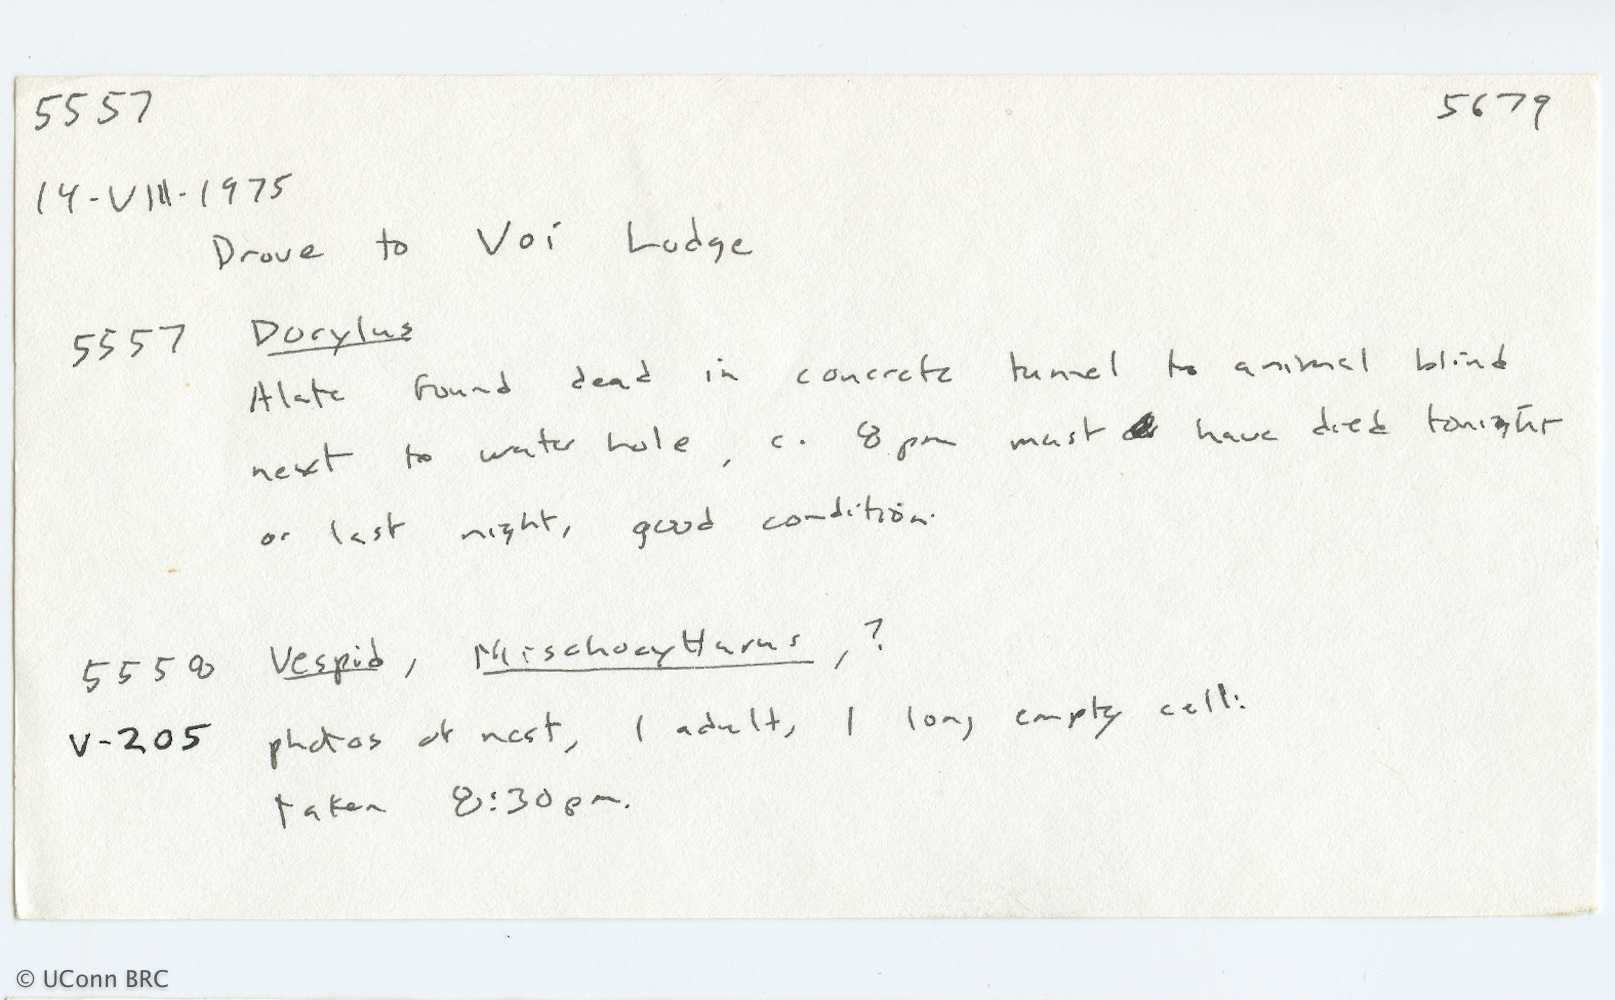 5557 5679
14-VIII-1975
Drove to Voi Lodge
5557 Dorylus
Alate found dead in concrete tunnel to animal blind
next to water hole, c. 8 pm must have died tonight
or last night, good condition.
5558 Vespid, Mischocyttarus, ?
V-205 photos of nest, 1 adult, 1 long empty cell:
taken 8:30 pm.
© UConn BRC